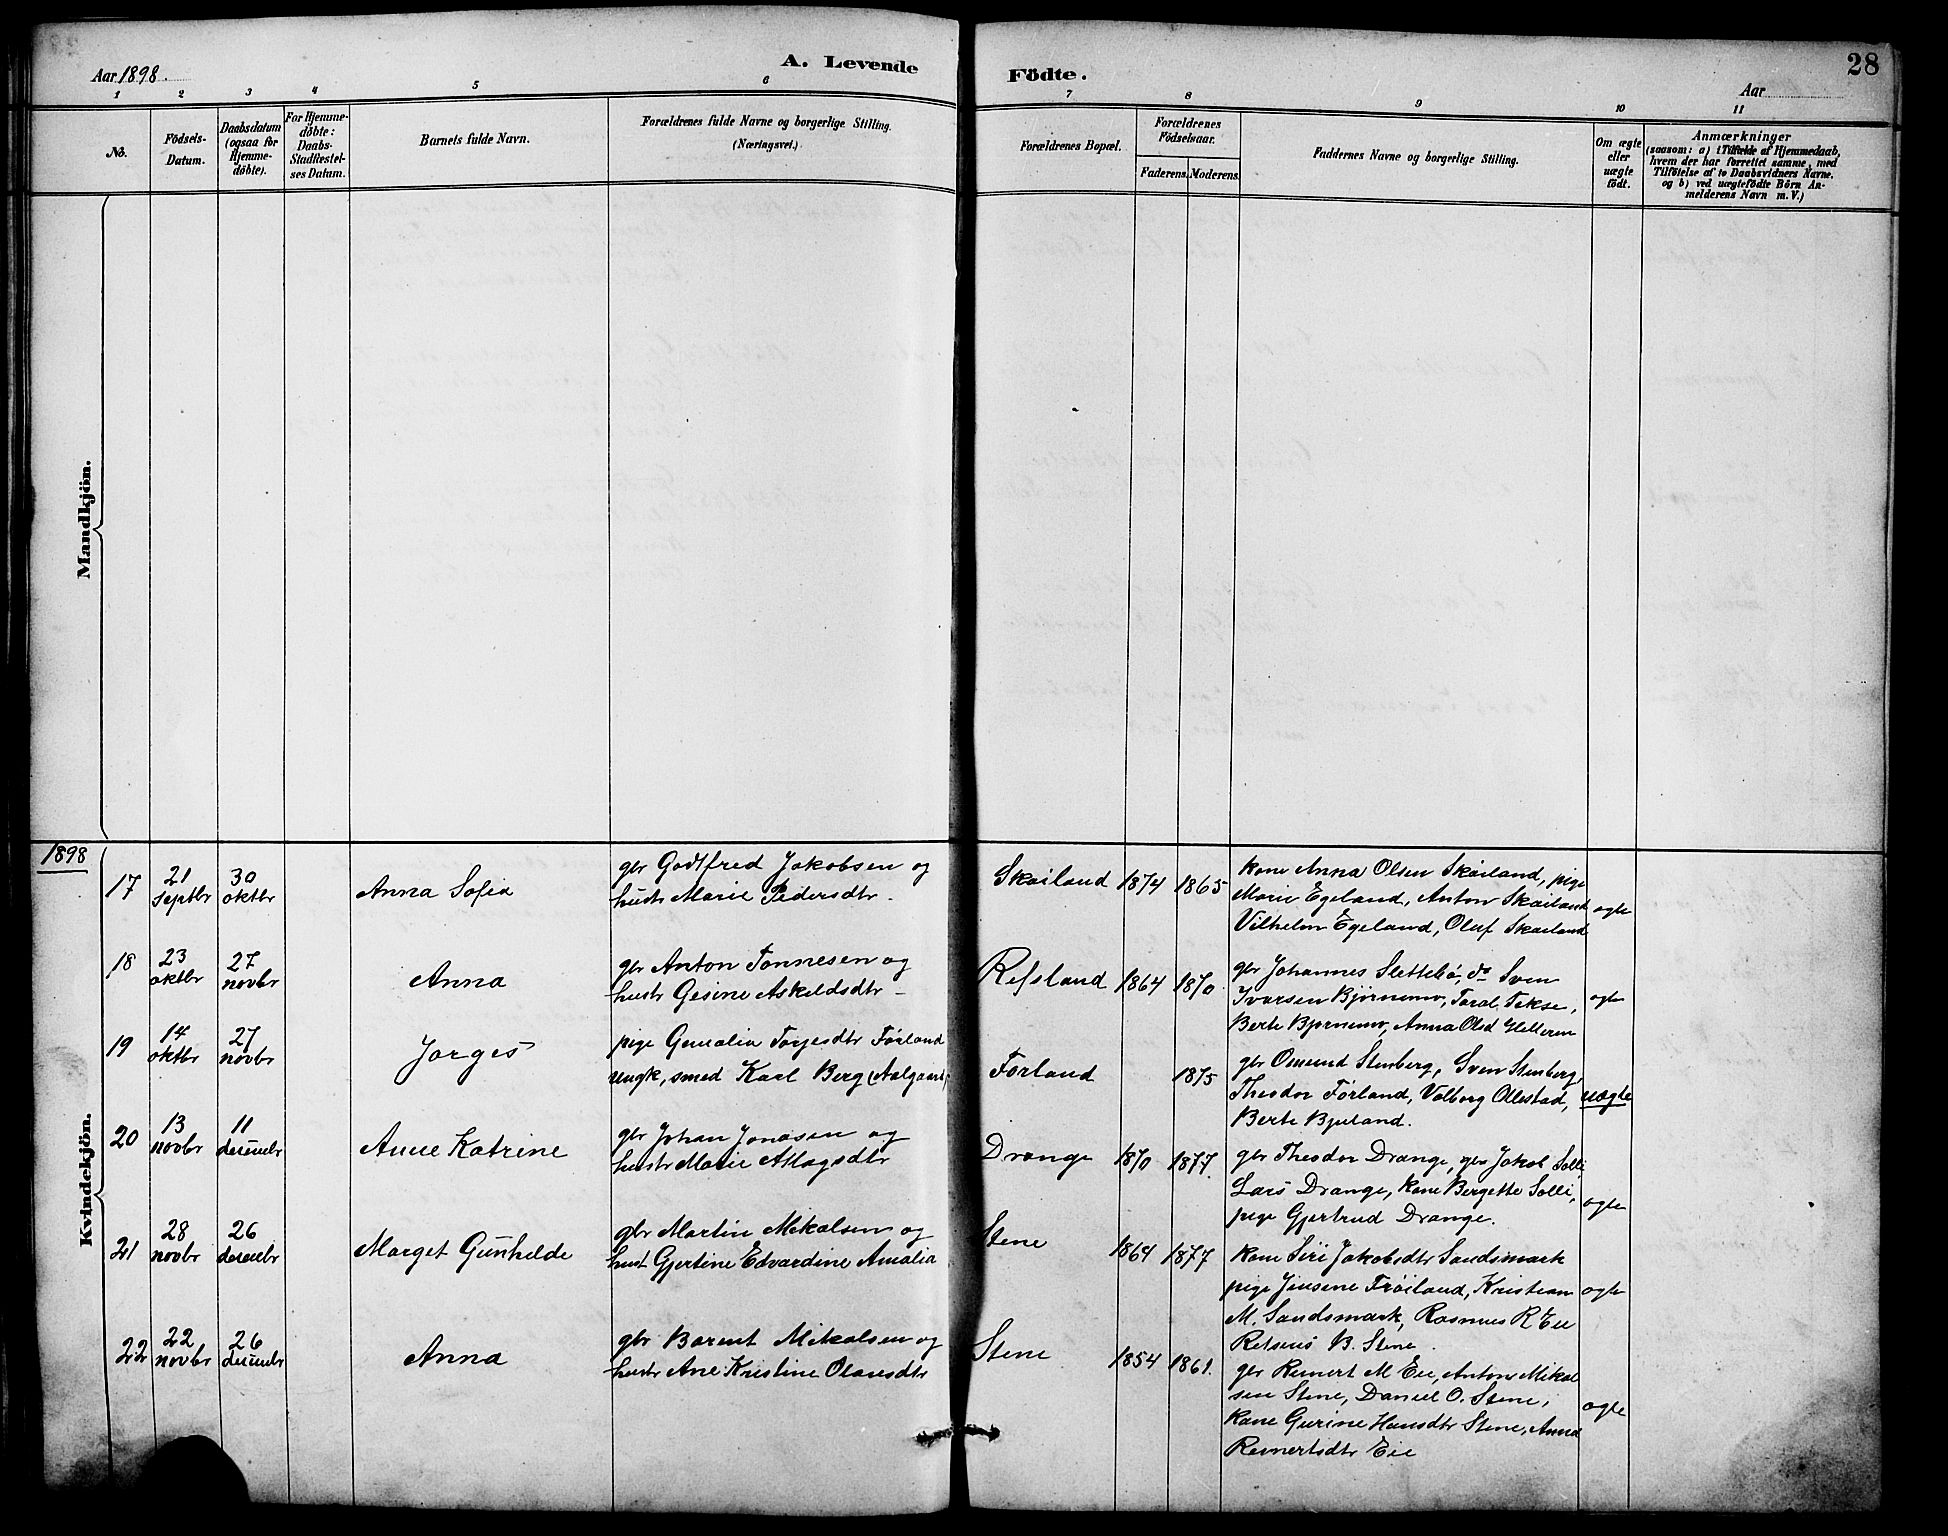 Aar 1898.
A. Levende
Födte.
Aar
28
1
2
3
4
5
6
7
8
9
10
11
No.
Födsels-
Datum.
Daabsdatum
(ogsaa for
Hjemme-
döbte).
For Hjemme-
döbte:
Daabs-
Stadfæstel-
ses Datum.
Barnets fulde Navn.
Forældrenes fulde Navne og borgerlige Stilling.
(Næringsvei.)
Forældrenes Bopæl.
Forældrenes
Födselsaar.
Faderens. Moderens.
Faddernes Navne og borgerlige Stilling.
Om ægte
eller
uægte
födt.
Anmærkninger
(saasom: a) i Tilfælde af Hjemmedaab,
hvem der har forrettet samme, med
Tilföielse af to Daabsvidners Navne.
og b) ved uægtefödte Börn An-
melderens Navn m. V.)
Mandkjön.
Kvindekjön.
1898
17
21
septbr
30
oktbr
Anna Sofia
gbr Godtfred Jakobsen og
hustr Marie Pedersdtr.
Skailand
1874
1865
kone Anna Olsen Skåiland, pige
Marie Egeland, Anton Skåiland
Vilhelm Egeland, Oluf Skailand
ægte
18
23
oktbr
27
novbr
Anna
gbr Anton Tønnesen og
hustr Gesine Askildsdtr
Refsland
1864
1870
gbr Johannes Slettebø, do Sven
Ivarsen Bjørnemo, Taral Tekse,
Berte Bjørnemo, Anna Olsd Helleren
ægte
19
14
oktbr
27
novbr
Jorges
pige Gunalia Torjesdtr Førland
ungk, smed Karl Berg (Aalgaard)
Førland
1875
gbr Osmund Stenberg, Sven Stenberg,
Theodor Førland, Valborg Ollestad,
Berte Bjuland.
uægte
20
13
novbr
11
decembr
Anne Katrine
gbr Johan Jonasen og
hustr Marie Atlagsdtr
Drange
1870
1877.
gbr Theodor Drange, gbr Jakob Solli
Lars Drange, kone Bergette Solli,
pige Gjertrud Drange.
ægte
21
28
novbr
26
decembr
Marget Gunhilde
gbr Martin Mikalsen og
hust Gjertine Edvardine Amalia
Stene
1864
1877
kone Siri Jakobsdtr Sandsmark
pige Jensene Frøiland, Kristian
M. Sandsmark, Rasmus R Eie
B. Stene.
ægte
22
22
novbr
26
decembr
Anna
gbr Barent Mikalsen og
hustr Ane Kristine Olavesdtr
Stene
1854
1861.
gbr Reinert M Eie, Anton Mikal
sen Stene, Daniel O. Stene,
kone Gurine Hansdtr Stene, Anna
Reinertsdtr Eie
ægte